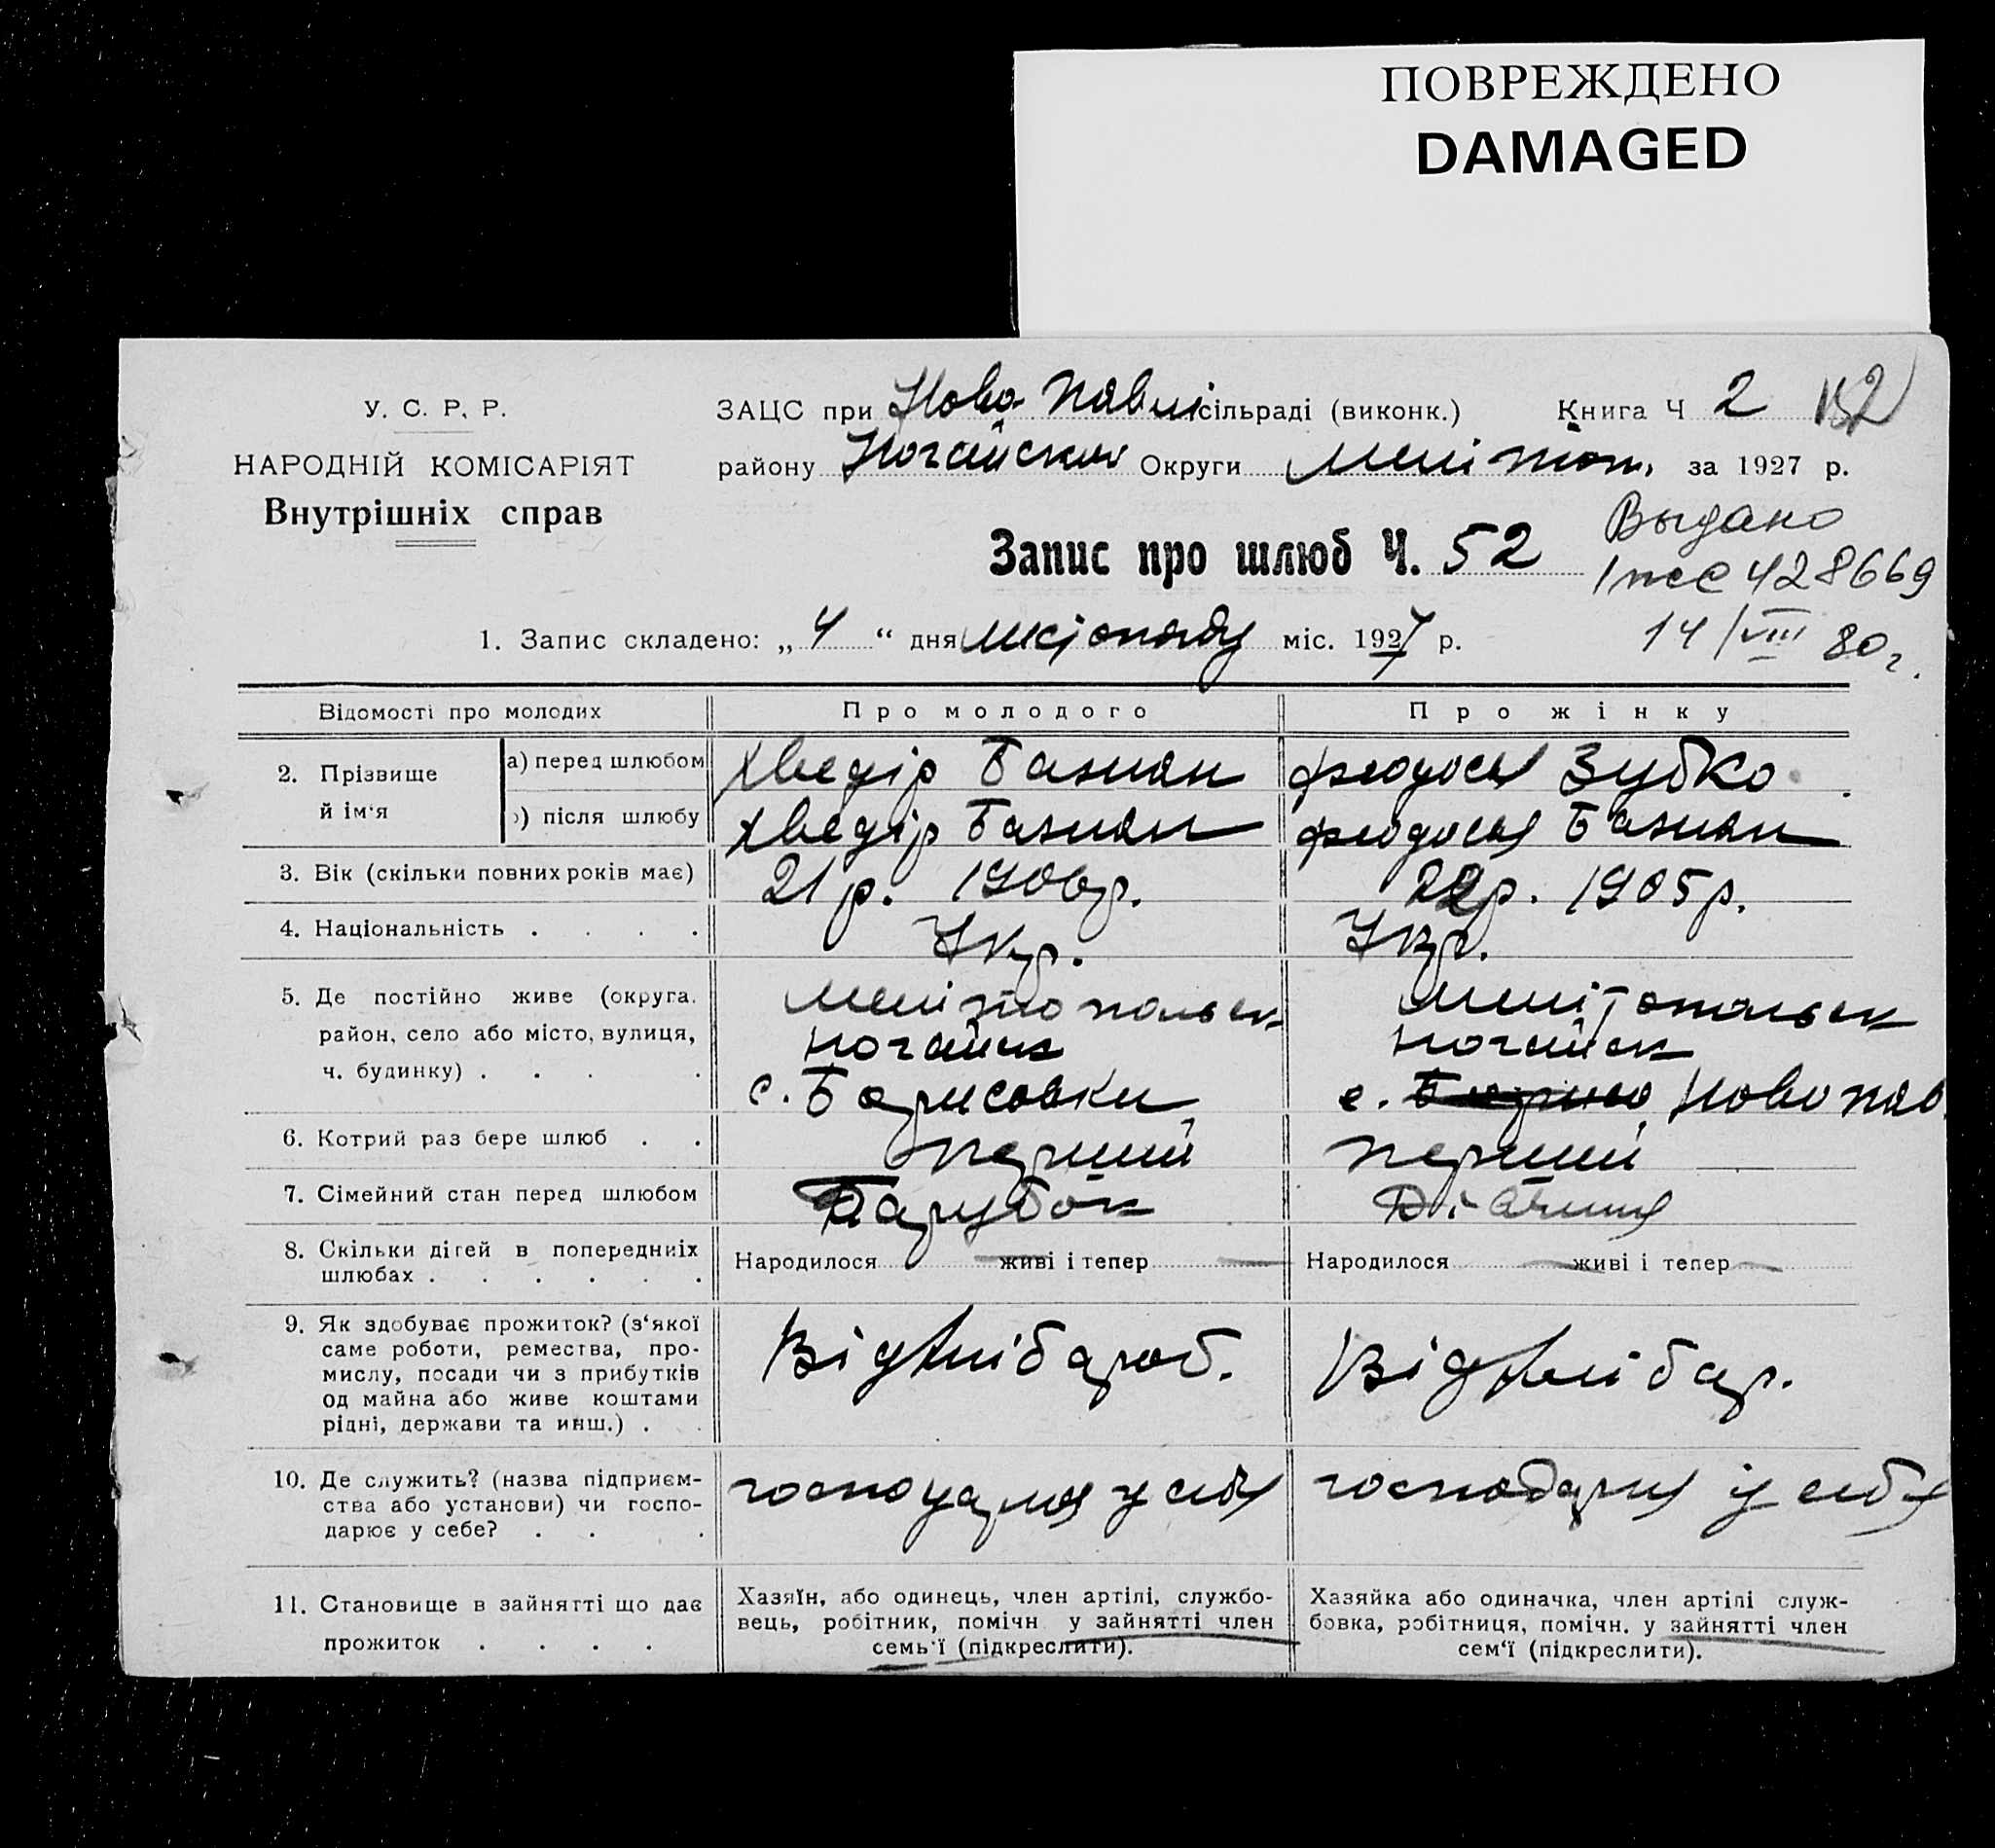 ПОВРЕЖДЕНО
DAMAGED
У. С. Р. Р.
НАРОДНІЙ КОМІСАРІЯТ
Внутрішніх справ
ЗАЦС при Ново Павлі сільраді (виконк.) Книга Ч 2
району Ногайском Округи Мелітоп. за 1927 р.
Запис про шлюб Ч. 52
Выдано
428669
14/VIII 80 г.
1. Запис складено: „ 4 “ дня листопаду міс. 1927 р.
Відомості про молодих Про молодого Про жінку
2. Прізвище й ім'я
а) перед шлюбом Хведір Базиян Феодосія Зубко
б) після шлюбу Хведір Базиян Феодосія Базиян
3. Вік (скільки повних років має) 21 р. 1906 р. 22 р. 1905 р.
4. Національність . . . . Укр. Укр.
5. Де постійно живе (округа, район, село або місто, вулиця, ч. будинку) . . .
Мелітопольск
Ногайск
с. Борисовки
Мелітопольск
Ногайск
с. Ново пав
6. Котрий раз бере шлюб . . перший перший
7. Сімейний стан перед шлюбом Парубок Дівчина
8. Скільки дітей в попередниіх шлюбах . . . . . . Народилося — живі і тепер — Народилося — живі і тепер —
9. Як здобуває прожиток? (з‘якої
саме роботи, ремества, про-
мислу, посади чи з прибутків
од майна або живе коштами
рідні, держави та инш.) .
Від хлібороб. Від хлібор.
10. Де служить? (назва підприєм-
ства або установи) чи госпо-
дарює у себе? . . .
господарює у себе господарює у себе
11. Становище в зайнятті що дає
прожиток . . . .
Хазяїн, або одинець, член артілі, службо-
вець, робітник, помічн у зайнятті член
семь‘ї (підкреслити).
Хазяйка або одиначка, член артілі служ-
бовка, робітниця, помічн. у зайнятті член
сем‘ї (підкреслити).